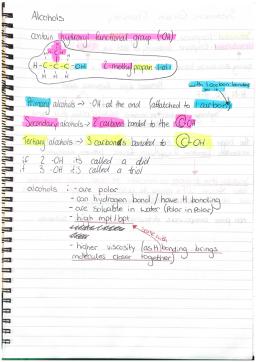 Alcohols
contain hydroxyl functional group (-OH)
H-C-C-C-OH
2-methyl propan-1-ol
with 1 carbon bonding
Primary alcohols → -OH at the end (attatched to 1 carbon)
Secondary alcohols → 2 carbons bonded to the C-OH
Tertiary alcohols → 3 carbons bonded to C-OH
if 2 -OH its called a diol
if 3 -OH its called a triol
alcohols : - are polar
- can hydrogen bond / have H bonding
- are soluable in water (Polar in Polar)
- high mpt/bpt
- higher viscosity (as H bonding brings
molecules closer together)